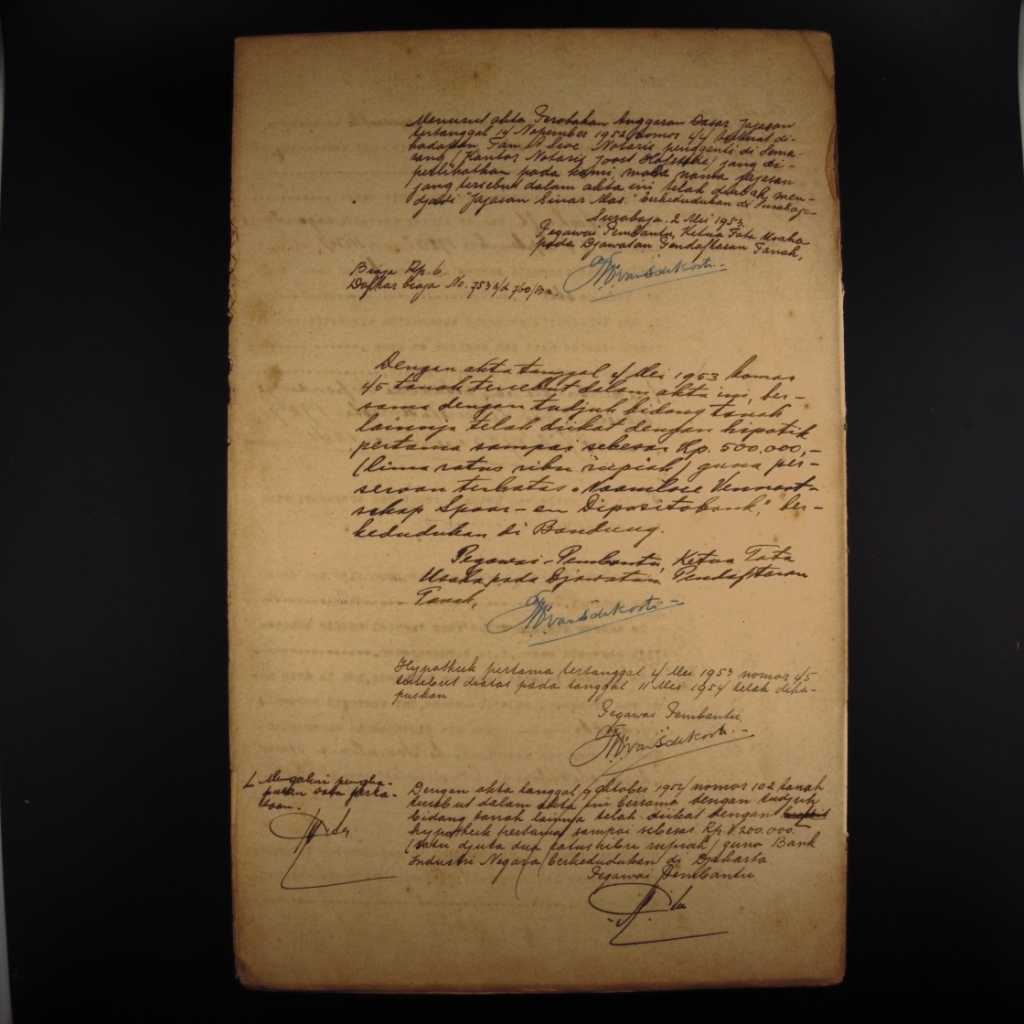 Menurut akta Perobahan Anggaran Dasar Jajasan
tertanggal 14 Nopember 1952 nomor 44 dibuat di-
hadapan Tan Sioe Notaris pengganti di Sema-
rang (Kantor Notaris Joost) jang di-
perlihatkan pada kami, maka nama Jajasan
jang tersebut dalam akta ini telah dirobah men-
djadi "Jajasan Sinar Mas" berkedudukan di Surabaja.
Surabaja, 2 Mei 1953
Pegawai Pembantu, Ketua Tata Usaha
pada Djawatan Pendaftaran Tanah,
Biaja Rp. 6.
Daftar biaja No.
Dengan akta tanggal 4 Mei 1953 nomor
45 tanah tersebut dalam akta ini, ber-
sama dengan tudjuh bidang tanah
lainnja telah diikat dengan hipotik
pertama sampai sebesar Rp. 500.000,-
(lima ratus ribu rupiah) guna per-
seroan terbatas "Naamloze Vennoot-
schap Spaar- en Depositobank," ber-
kedudukan di Bandung.
Pegawai-Pembantu, Ketua Tata
Usaha pada Djawatan Pendaftaran
Tanah,
Hypotheek pertama tertanggal 4 Mei 1953 nomor 45
tersebut diatas pada tanggal 11 Mei 1954 telah diha-
puskan
Pegawai Pembantu
Mengakui pengha-
pusan satu perka-
taan.
Dengan akta tanggal 9 Oktober 1954 nomor 102 tanah
tersebut dalam akta ini bersama dengan tudjuh
bidang tanah lainnja telah diikat dengan
hypotheek pertama sampai sebesar Rp 1.200.000.-
(satu djuta dua ratus ribu rupiah) guna Bank
Industri Negara, berkedudukan di Djakarta
Pegawai Pembantu